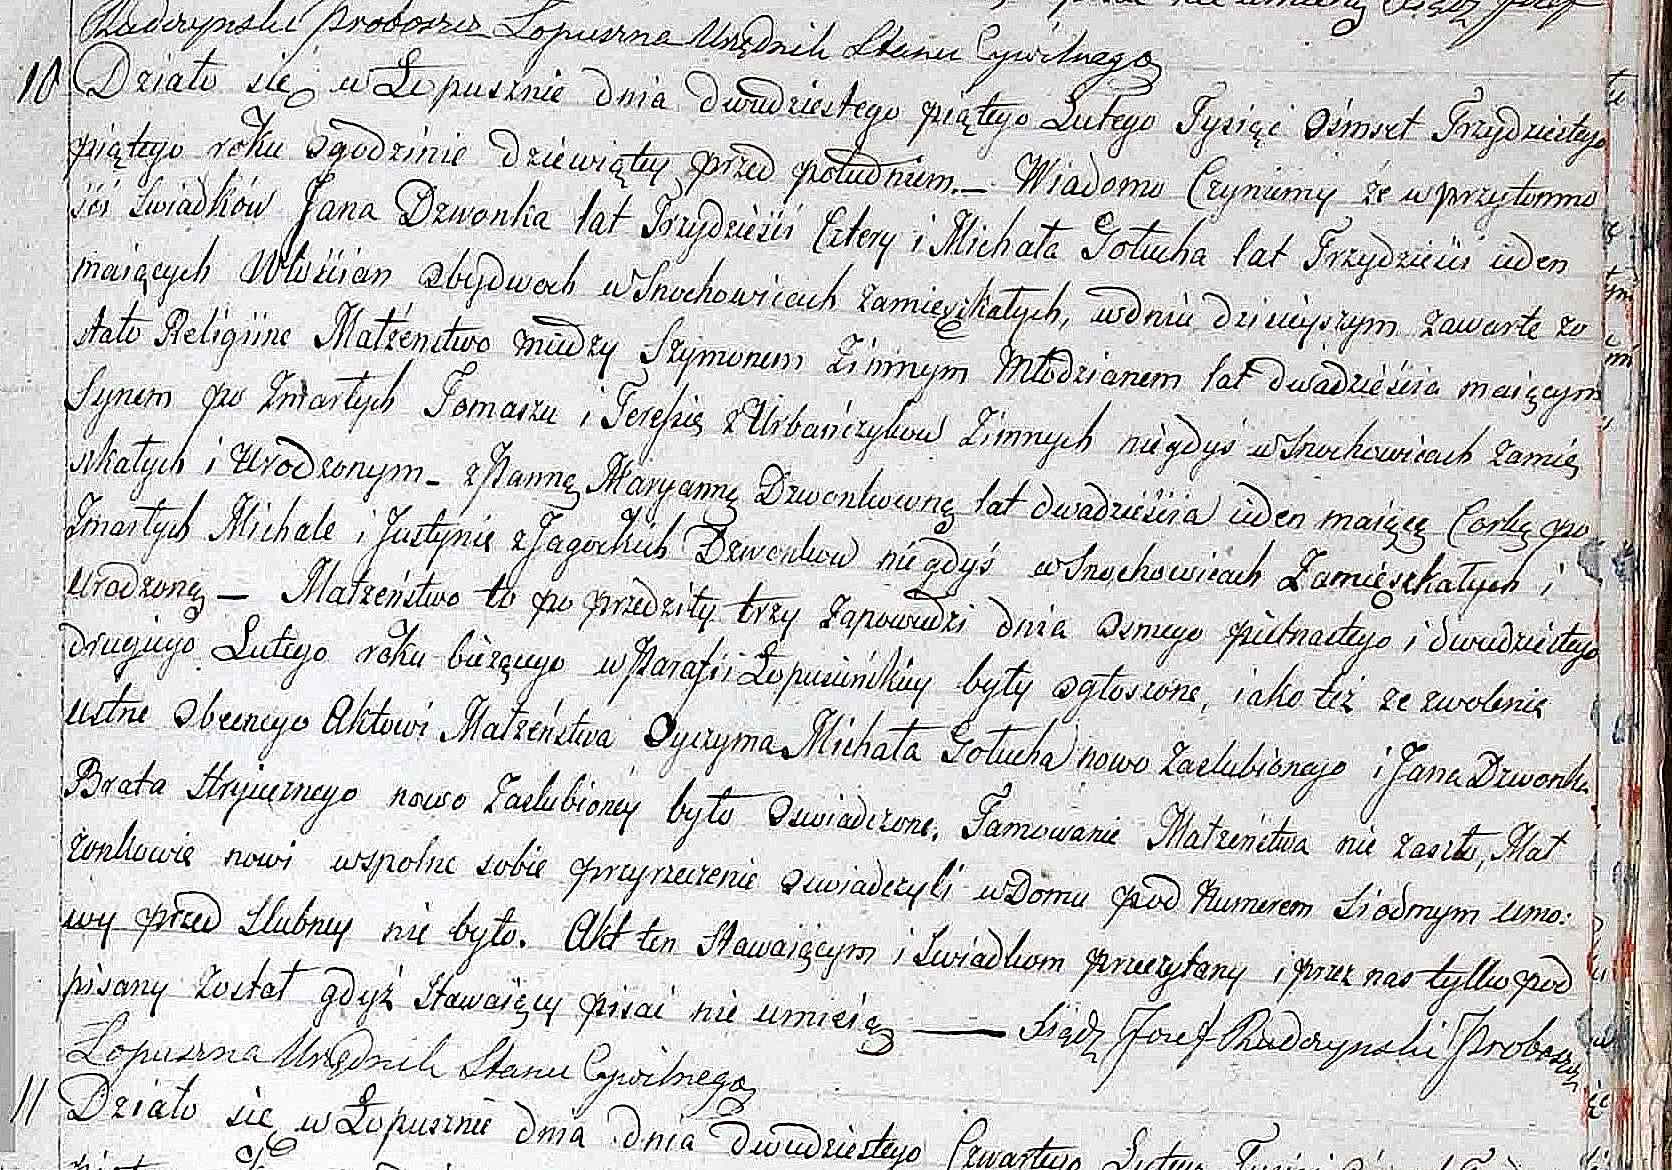 Rudczynski Proboszcz Łopuszna Urzędnik Stanu Cywilnego
10 Działo się w Łopusznie dnia dwudziestego piątego Lutego Tysiąc ośmset Trzydziestego
piątego roku o godzinie dziewiątey przed południem. — Wiadomo Czyniemy że w przytomno
ści świadków Jana Dzwonka lat Trzydzieści Cztery i Michała Gołucha lat Trzydzieści ieden
maiących Włościan obydwoch w Snochowicach zamięszkałych, w dniu dzisieyszym zawarte zo
stało Religiine Małżeństwo między Szymonem Zimnym Młodzianem lat dwadzieścia maiącym
Synem po Zmarłych Tomaszu i Teresie z Urbańczykow Zimnych niegdyś w Snochowicach Zamię
szkałych i Urodzonym — z Panną Maryanną Dzwonkowną lat dwadzieścia ieden maiącą Corką po
Zmarłych Michale i Justynie z Jagockich Dzwonkow niegdyś w Snochowicach Zamięszkałych i
Urodzoną — Małżeństwo to poprzedziły trzy zapowiedzi dnia osmego pietnastego i dwudziestego
drugiego Lutego roku bieżącego w Parafii Łopusińskiey były ogłoszone, iako też ze zwolenie
ustne obecnego Aktowi Małżeństwa Oyczyma Michała Gołucha nowo Zaslubionego i Jana Dzwonka
Brata stryiecznego nowo Zaslubioney było oswiadczone. Tamowanie Małżeństwa nie zaszło, Mał
żonkowie nowi wspolne sobie przyrzeczenie oswiadczyli w Domu pod Numerem Siodmym umo:
wy przed slubney nie było. Akt ten stawaiącym i swiadkom przeczytany i przez nas tylko pod
pisany został gdyż stawaiący pisać nie umieią — Xiądz Jozef Rudczynski Proboszcz
Łopuszna Urzędnik Stanu Cywilnego
11 Działo się w Łopusznie dnia dnia dwudziestego Czwartego Lutego